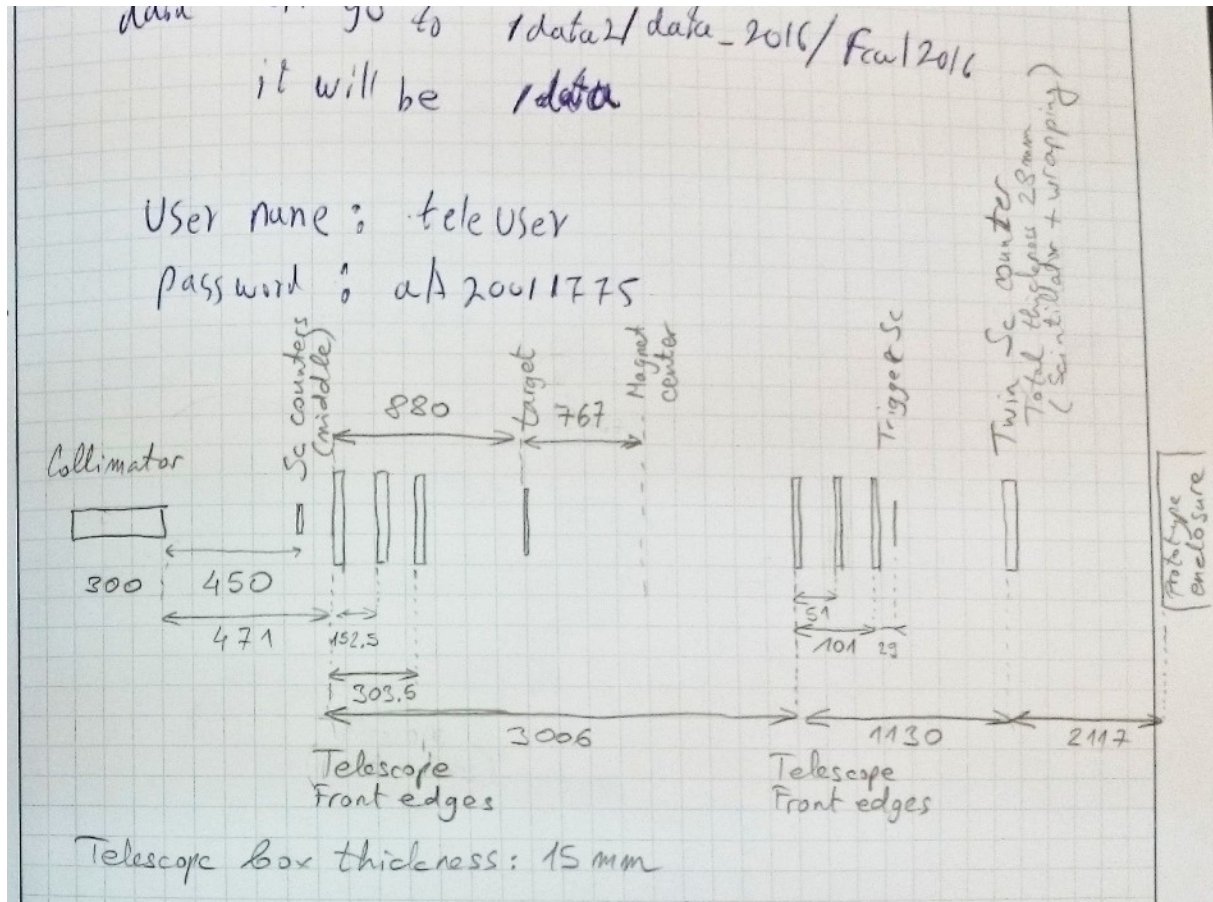 data go to /data2/data_2016/Fcal2016
it will be /data
User name : teleuser
password : aA20011775
Collimator
Sc counters
(middle)
880
target
767
Magnet
center
Trigger Sc
Twin Sc counter
Total thickness 28mm
(Scintillator + wrapping)
Prototype
enclosure
300
450
471
152,5
303.5
51
101
29
3006
1130
2117
Telescope
Front edges
Telescope
Front edges
Telescope box thickness: 15 mm